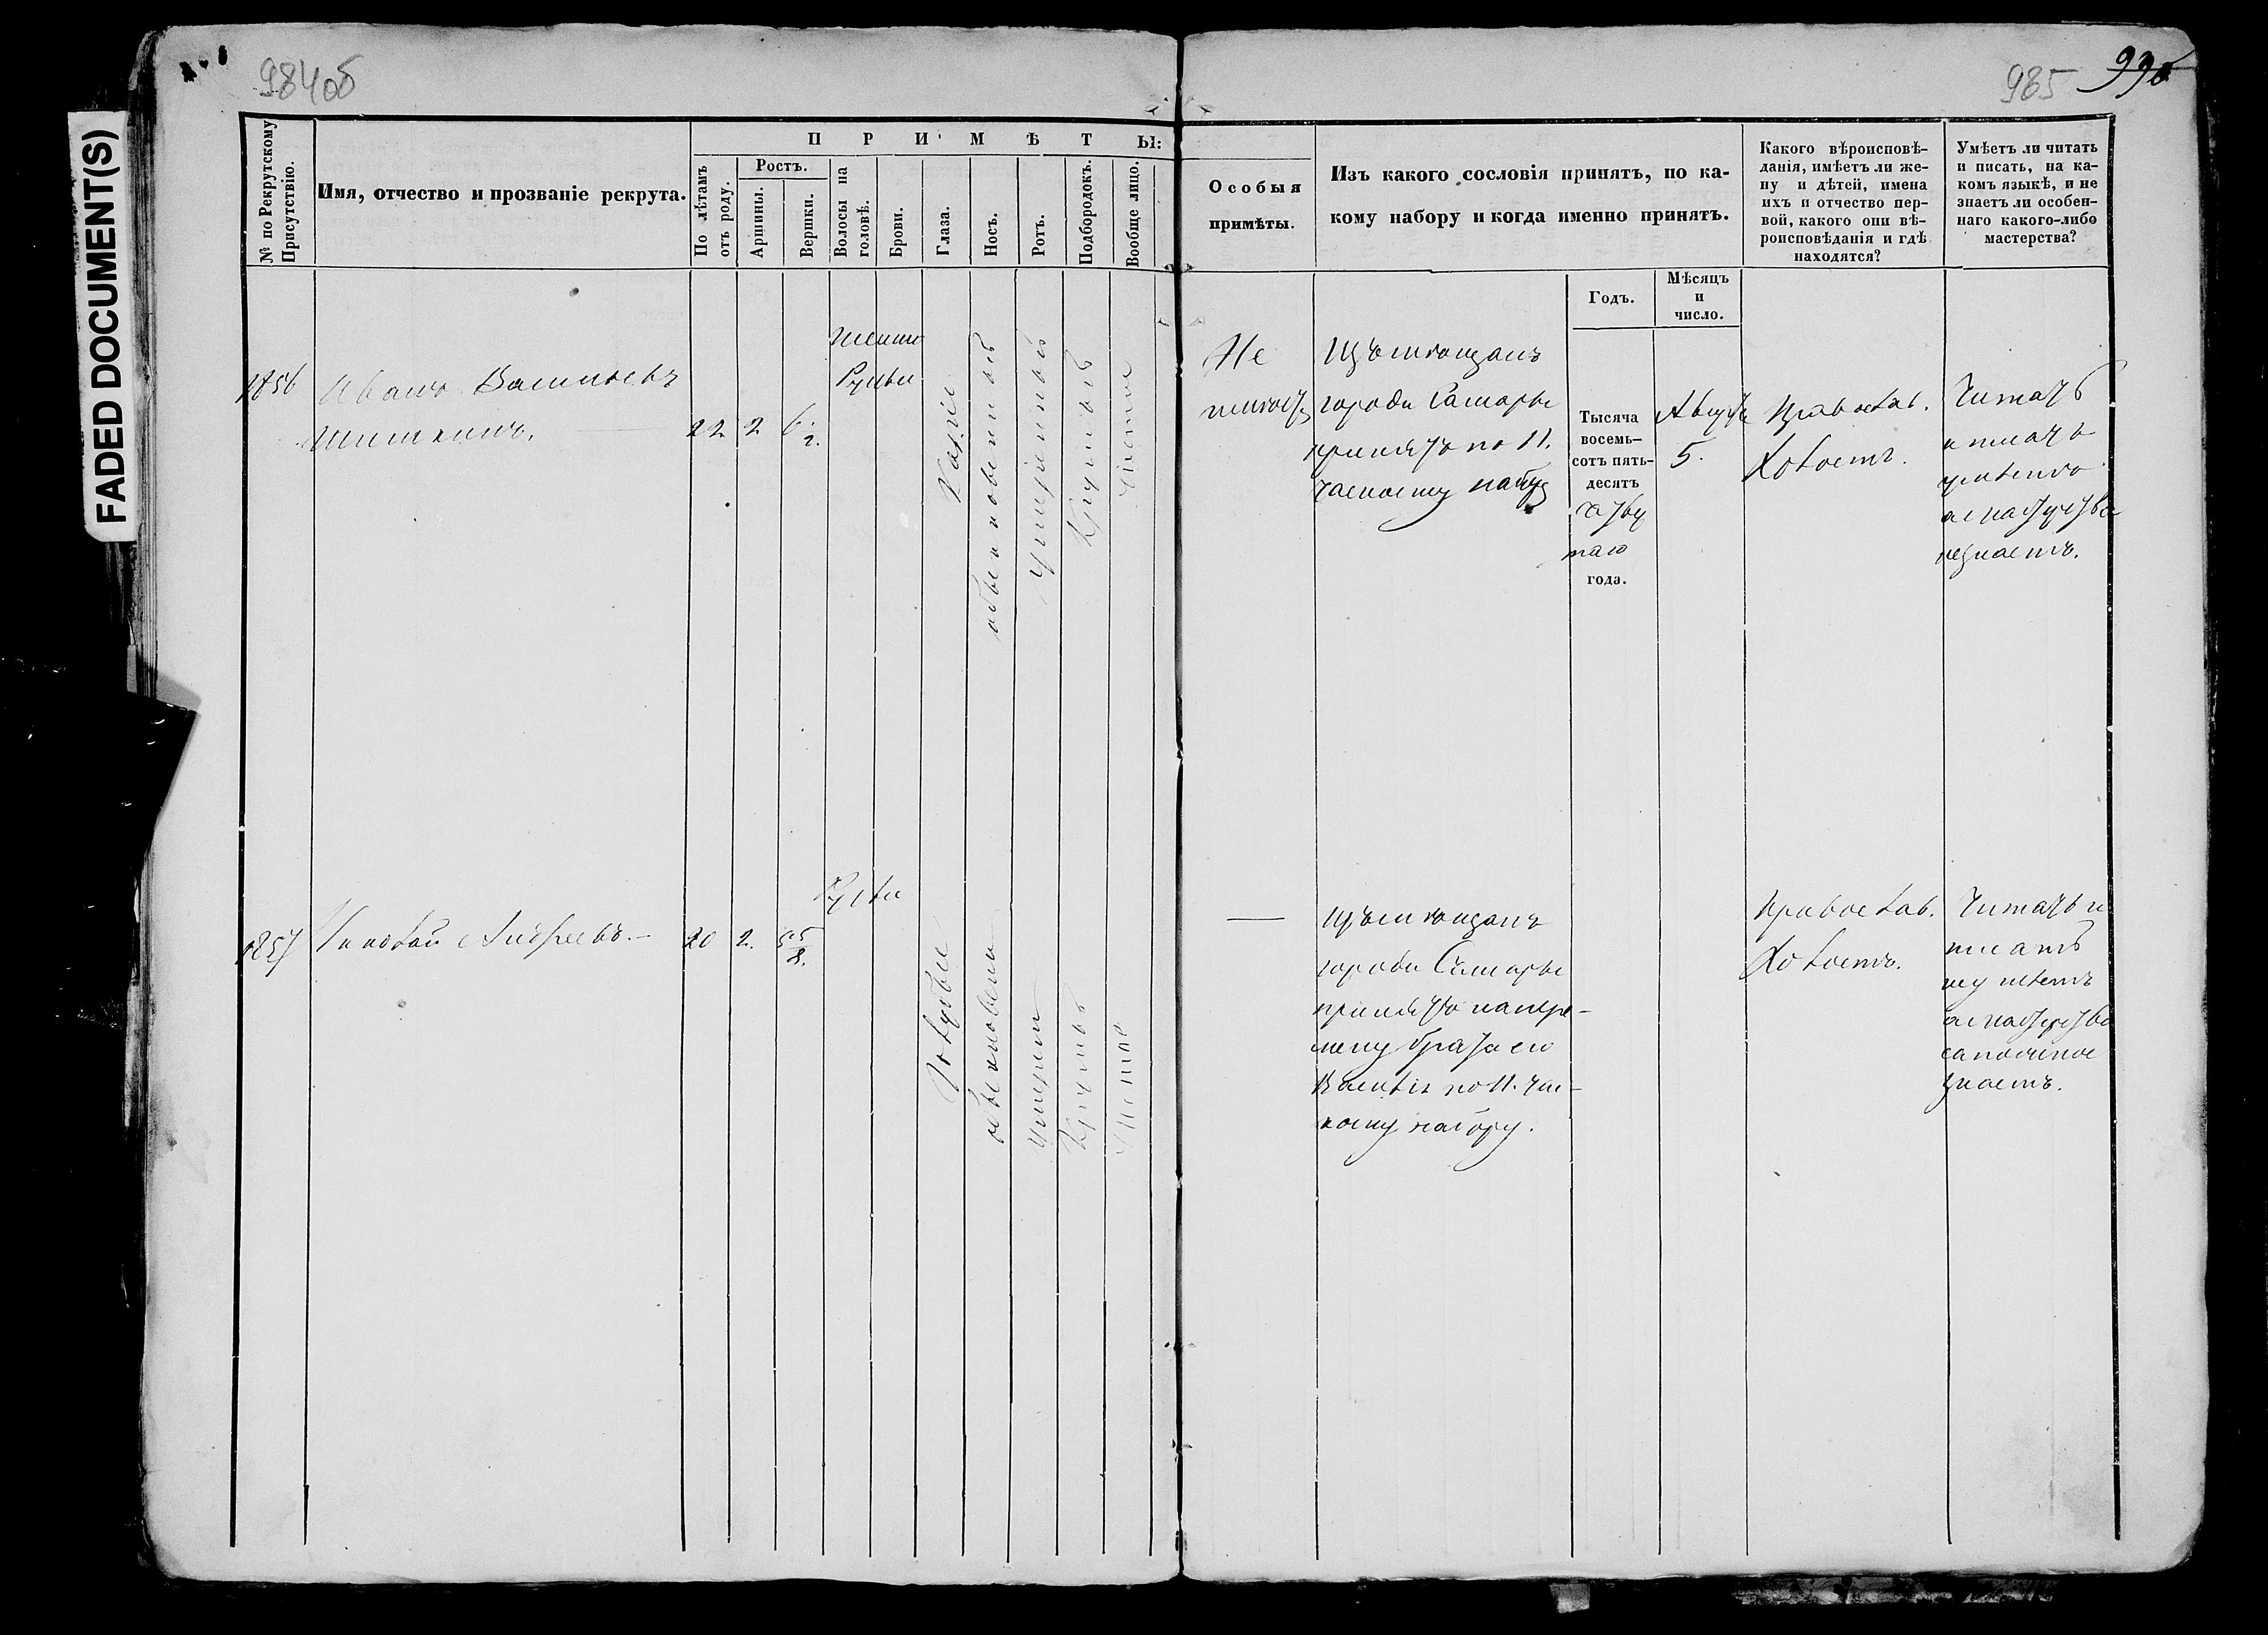 FADED DOCUMENT(S)
984об
985 990
№ по Рекрутскому
Присутствію.
Имя, отчество и прозваніе рекрута.
П Р И М Ѣ Т Ы:
По лѣтамъ
отъ роду.
Ростъ.
Аршины.
Вершки.
Волосы на
головѣ.
Брови.
Глаза.
Носъ.
Ротъ.
Подбородокъ.
Вообще лицо.
Особыя
примѣты.
Изъ какого сословія принятъ, по ка-
кому набору и когда именно принятъ.
Годъ.
Мѣсяцъ
и
число.
Какого вѣроисповѣ-
данія, имѣетъ ли же-
ну и дѣтей, имена
ихъ и отчество пер-
вой, какого они вѣ-
роисповѣданія и гдѣ
находятся?
Умѣетъ ли читать
и писать, на ка-
комъ языкѣ, и не
знаетъ ли особен-
наго какого-либо
мастерства?
1856
Иванъ Васильевъ
Шишкинъ.
22 2 6 1/2.
Темно
Русые
Каріе
обыкновенный
Умеренный
Круглый
чистое
Не
имеетъ
Изъ мещанъ
города Самары
принятъ по 11.
частному набору
Тысяча
восемь-
сотъ пять-
десятъ
четвер
таго
года.
Августа
5.
Православ.
Холостъ.
Читать
и писать
умеетъ
а мастерства
незнаетъ.
1857
Николай Андреевъ.
20 2. 5 5/8.
Русые
Голубые
обыкновен
Умерен
Круглый
Чистое
—
Изъ мещанъ
города Самары
принятъ напере-
мену брата его
Василія по 11. час-
ному набору.
Православ.
Холостъ.
Читать и
писать
неумеетъ
а мастерство
сапожное
знаетъ.